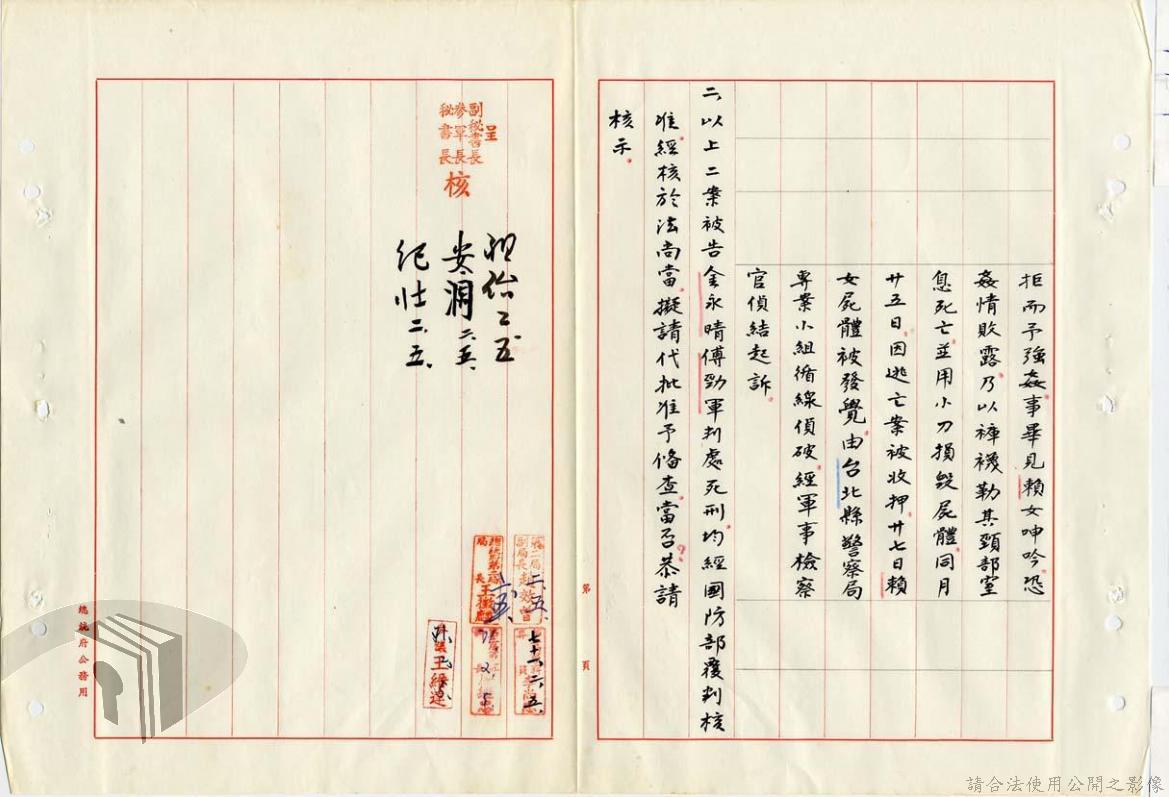 拒而予強姦事畢見賴女呻吟恐
姦情敗露乃以褲襪勒其頸部窒
息死亡並用小刀損毀屍體同月
廿五日因逃亡案被收押廿七日賴
女屍體被發覺由台北縣警察局
專案小組循線偵破經軍事檢察
官偵結起訴
二以上二案被告金永晴傅勁軍判處死刑均經國防部覆判核
准經核於法尚當擬請代批准予備查當否恭請
核示
第 頁
呈
副秘書長
參軍長
秘書長
核
二五
安瀾二五
紀壯二五
第二局
副局長
二五
總統府第二局
局長
七十一二五
總統府公務用
請合法使用公開之影像